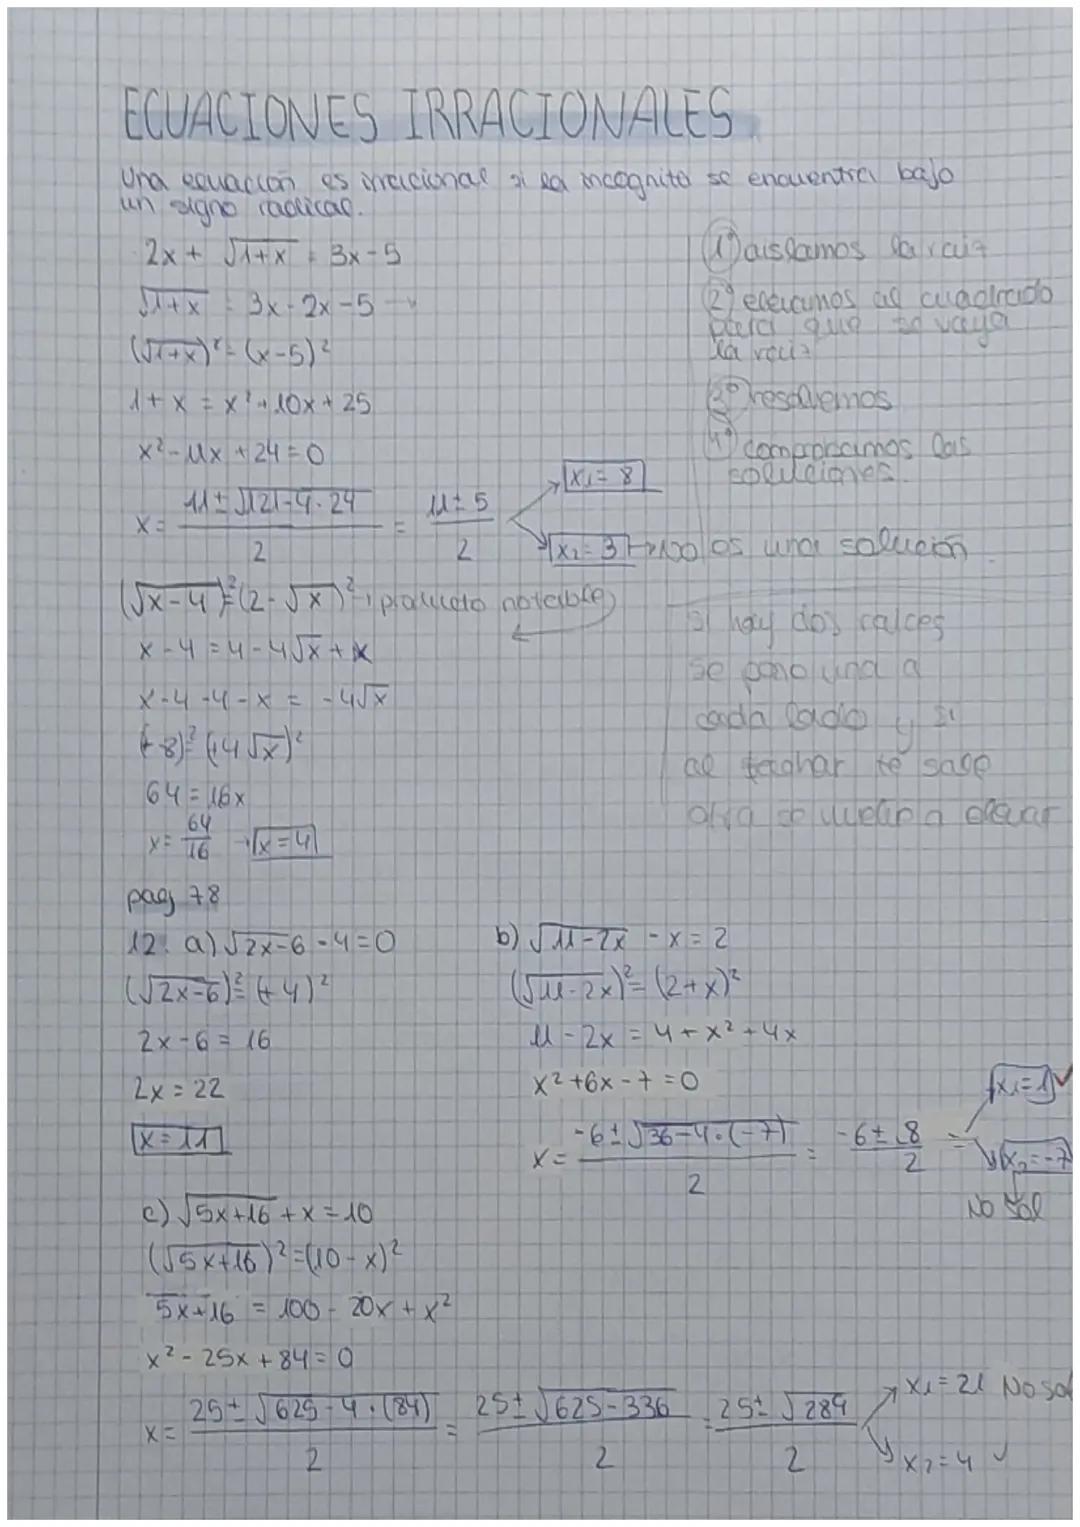 ECUACIONES IRRACIONALES
Una ecuación es irracional si la incognita se encuentra bajo
un signo radical.
2x + √1+x = 3x-5
√1+x = 3x-2x-5 →
(√1+x)² = (x-5)²
1+x = x²-10x+25
x²-11x+24=0
x = 11±√121-4·24 / 2 = 11±5 / 2
x₁=8
x₂=3 → No es una solución
1º aislamos la raiz
2º elevamos al cuadrado
para que se vaya
la raiz
3º resolvemos
4º comprobamos las
soluciones.
(√x-4)² = (2-√x)² → producto notable
x-4 = 4-4√x+x
x-4-4-x = -4√x
(+8)² = (+4√x)²
64 = 16x
x = 64/16 → x=4
si hay dos raices
se pone una a
cada lado y si
al tachar te sale
otra se vuelve a elevar
pag 78
12. a) √2x-6 -4=0
(√2x-6)² = (+4)²
2x-6 = 16
2x = 22
x=11
b) √11-2x -x=2
(√11-2x)² = (2+x)²
11-2x = 4+x²+4x
x²+6x-7=0
x = -6±√36-4·(-7) / 2 = -6±8 / 2 =
x₁=1 ✓
x₂=-7
No sol
c) √5x+16 +x=10
(√5x+16)² = (10-x)²
5x+16 = 100-20x+x²
x²-25x+84=0
x = 25±√625-4·(84) / 2 = 25±√625-336 / 2 = 25±√289 / 2
x₁=21 No sol
x₂=4 ✓